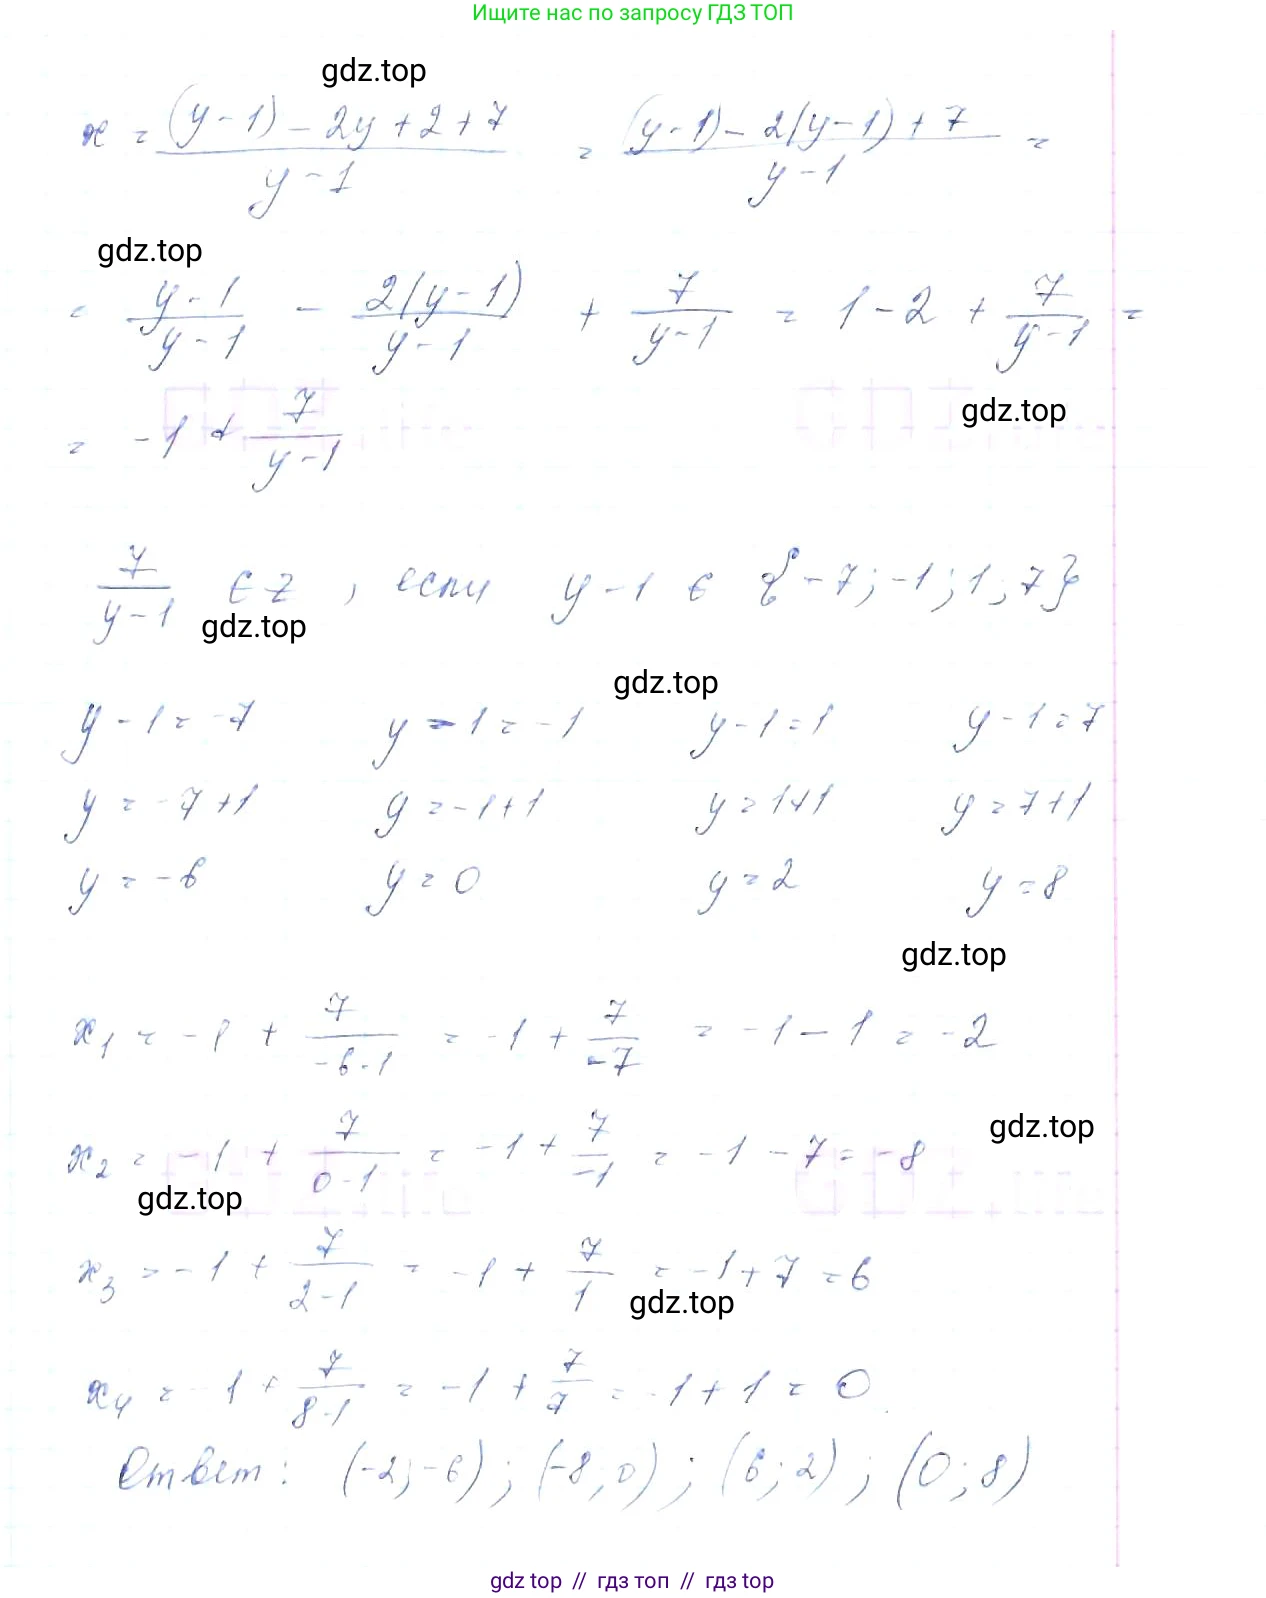 Ищите нас по запросу ГДЗ ТОП
gdz.top
x = ((y-1) - 2y + 2 + 7)/(y-1) = ((y-1) - 2(y-1) + 7)/(y-1) =
gdz.top
= (y-1)/(y-1) - 2(y-1)/(y-1) + 7/(y-1) = 1 - 2 + 7/(y-1) =
gdz.top
= -1 + 7/(y-1)
7/(y-1) ∈ Z, если y-1 ∈ {-7; -1; 1; 7}
gdz.top
gdz.top
y-1 = -7 y-1 = -1 y-1 = 1 y-1 = 7
y = -7+1 y = -1+1 y = 1+1 y = 7+1
y = -6 y = 0 y = 2 y = 8
gdz.top
x₁ = -1 + 7/(-6-1) = -1 + 7/-7 = -1 - 1 = -2
gdz.top
x₂ = -1 + 7/(0-1) = -1 + 7/-1 = -1 - 7 = -8
gdz.top
x₃ = -1 + 7/(2-1) = -1 + 7/1 = -1 + 7 = 6
gdz.top
x₄ = -1 + 7/(8-1) = -1 + 7/7 = -1 + 1 = 0
Ответ: (-2; -6); (-8; 0); (6; 2); (0; 8)
gdz top // гдз топ // гдз top